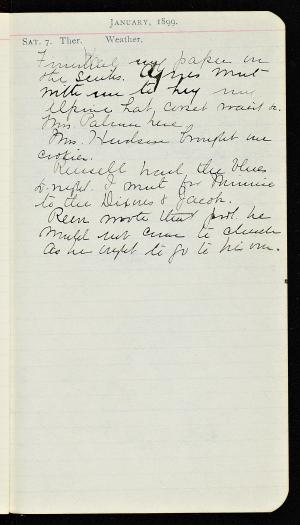 JANUARY, 1899.
SAT. 7. Ther. Weather.
Finished my paper on
the Scents. Agnes went
with me to buy my
Alpine hat, corset waist &.
Mrs. Palmer here.
Mrs. Henderson brought me
cookies.
Russell had the blues
to-night. I went for Minnie
to the & Jacob.
wrote that he
would not come to church
as he ought to go to his own.